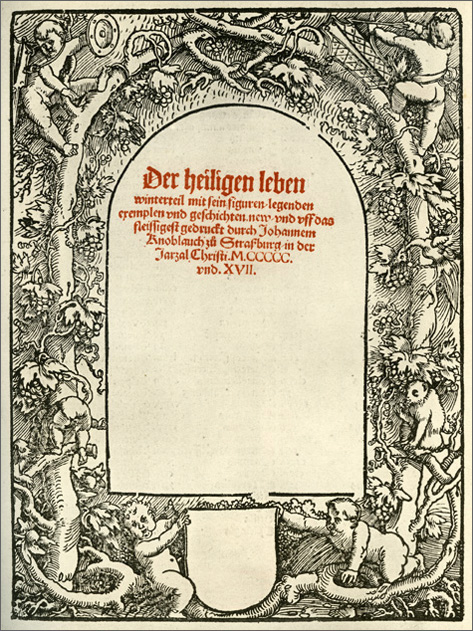 Der heiligen leben
winterteil mit sein figuren. legenden
exemplen vnd geschichten. new vnd vff das
fleissigest gedruckt durch Johannem
Knoblauch zů Straßburg in der
Jarzal Christi. M.CCCCC.
vnd. XVII.